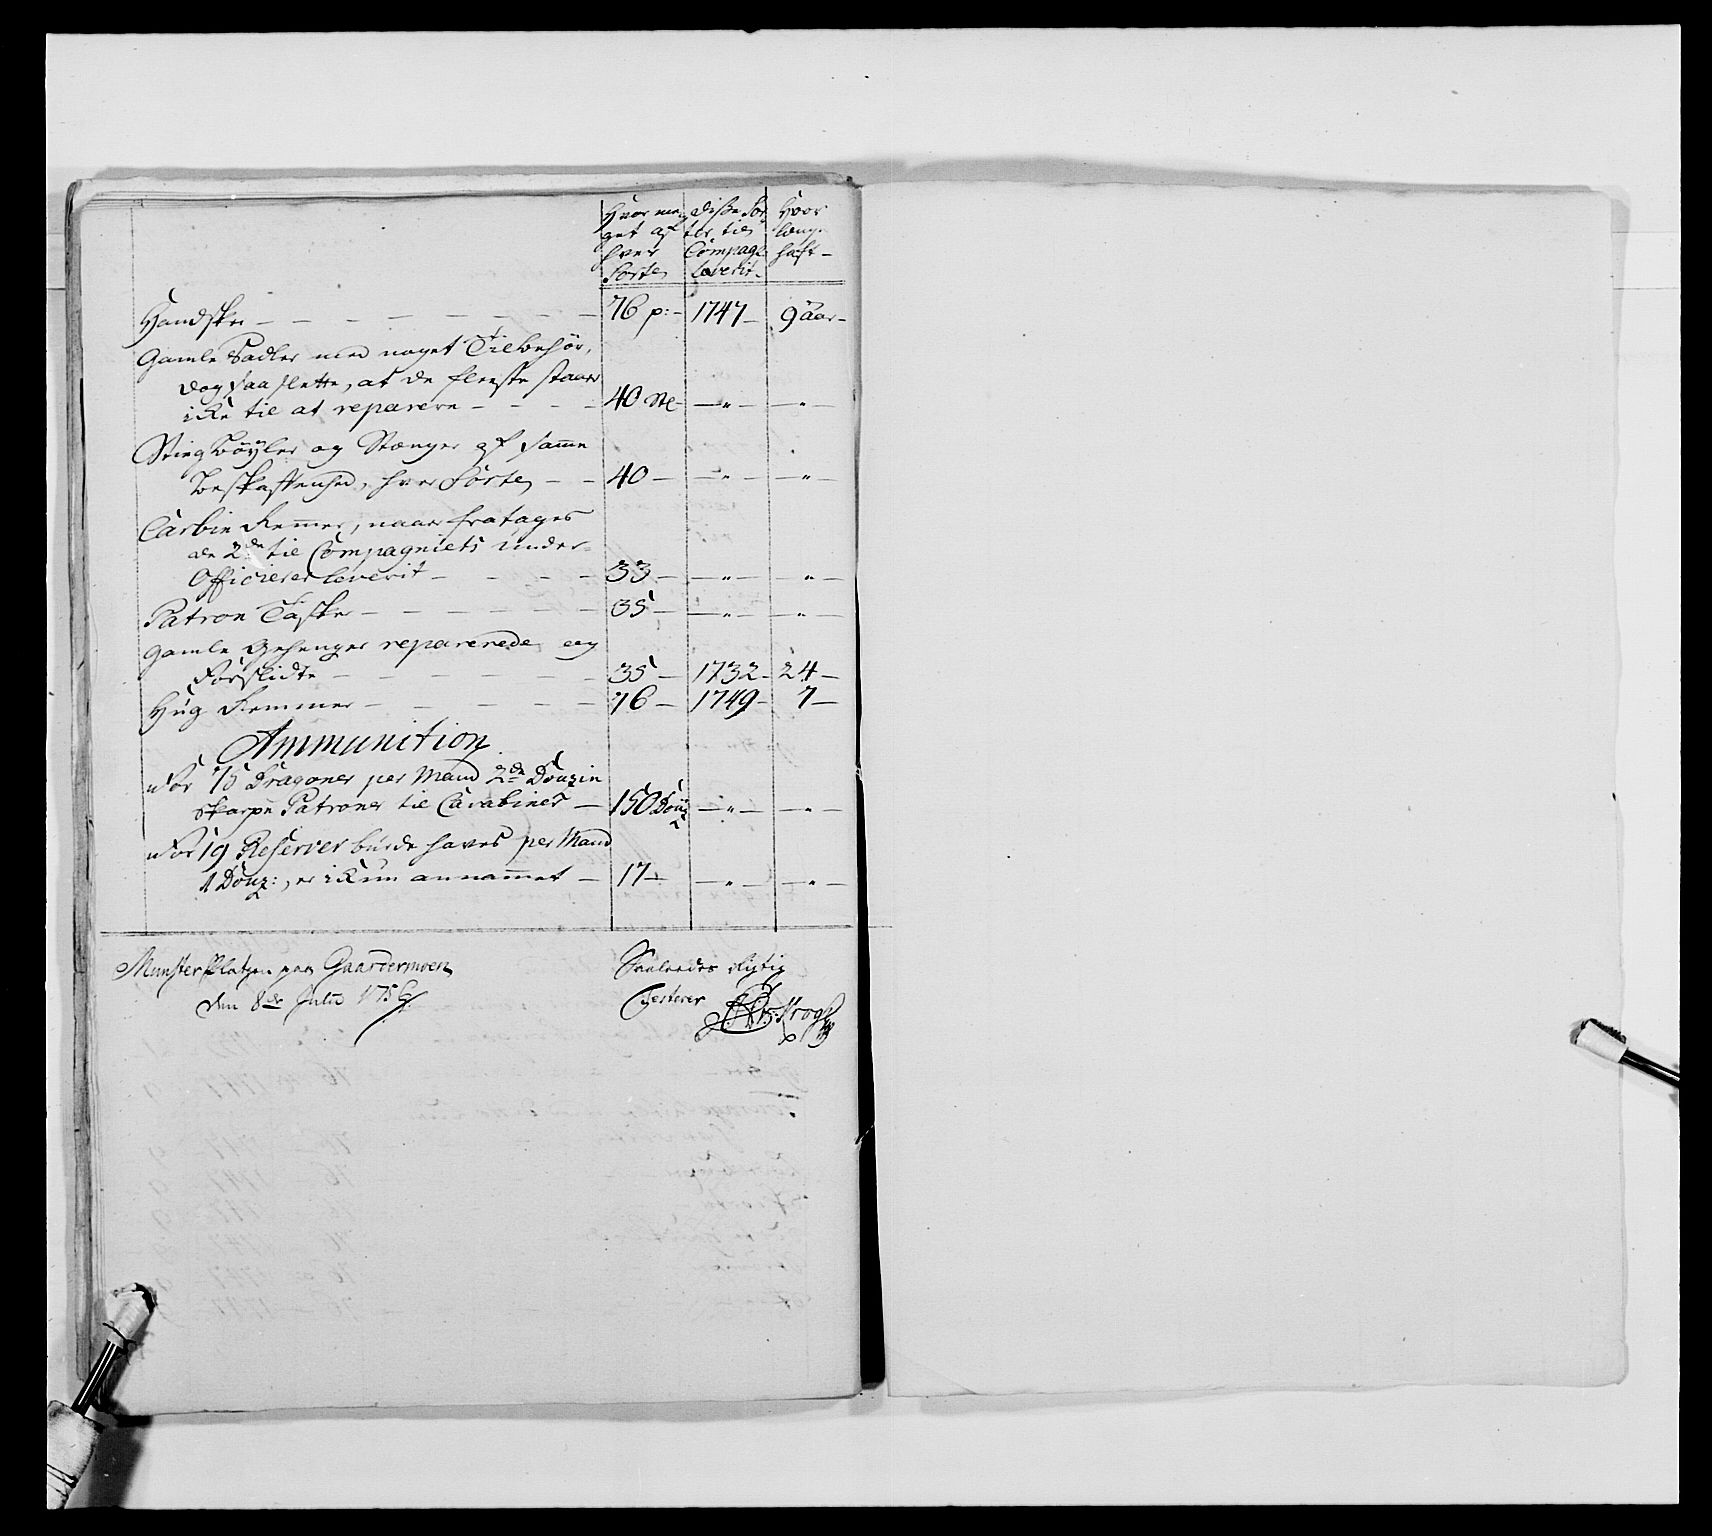 Hvor me- Diße Sor- Hvor
get af ter til læng-
hver Compagt: haft -
Sorte leverit -
Handsker - - - - - - - 76 p: - 1747 - 9 Aar -
Gamle Sadler med noget Tilbehör,
dog saa slette, at de fleeste staaer
icke til at reparere - - - - 40 St: - " - - " -
Stieg Böyler og Stænger af samme
Beskaffenhed, hver Sorte - - 40 - - " - - " -
Carbin Remmer, naar fratages
de 2de til Compagniets Under-
Officierer leverit - - - - 33 - - " - - " -
Patron Tasker - - - - - - 35 - - " - - " -
Gamle Gehenger reparerede og
Forslidte - - - - - - 35 - 1732 - 24 -
Hug Remmer - - - - - - 76 - 1749 - 7 -
Ammunition
For 75 Dragoner per Mand 2de Douzin
skarpe Patroner til Carabiner - 150 Douz - " - - " -
For 19 Reserver burde haves per Mand
1 Douz:, er ickun annammet - 17 - - " - - " -
Munster Platzen paa Gaardermoen
den 8de Julii 1756
Saaledes rigtig
Testerer
Krogh